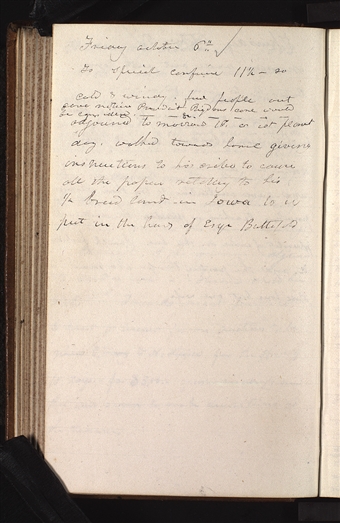 Friday October 6th
To Special conference 11½ - so
cold & windy, few people out
gave notice President Biddons case would
be considered
adjourned to morrow or 1st pleasant
day. walked towards home giving
instructions to his scribe to cause
all the papers relating to his
½ breed land in Iowa to be
put in the hands of Esqr Butterfield